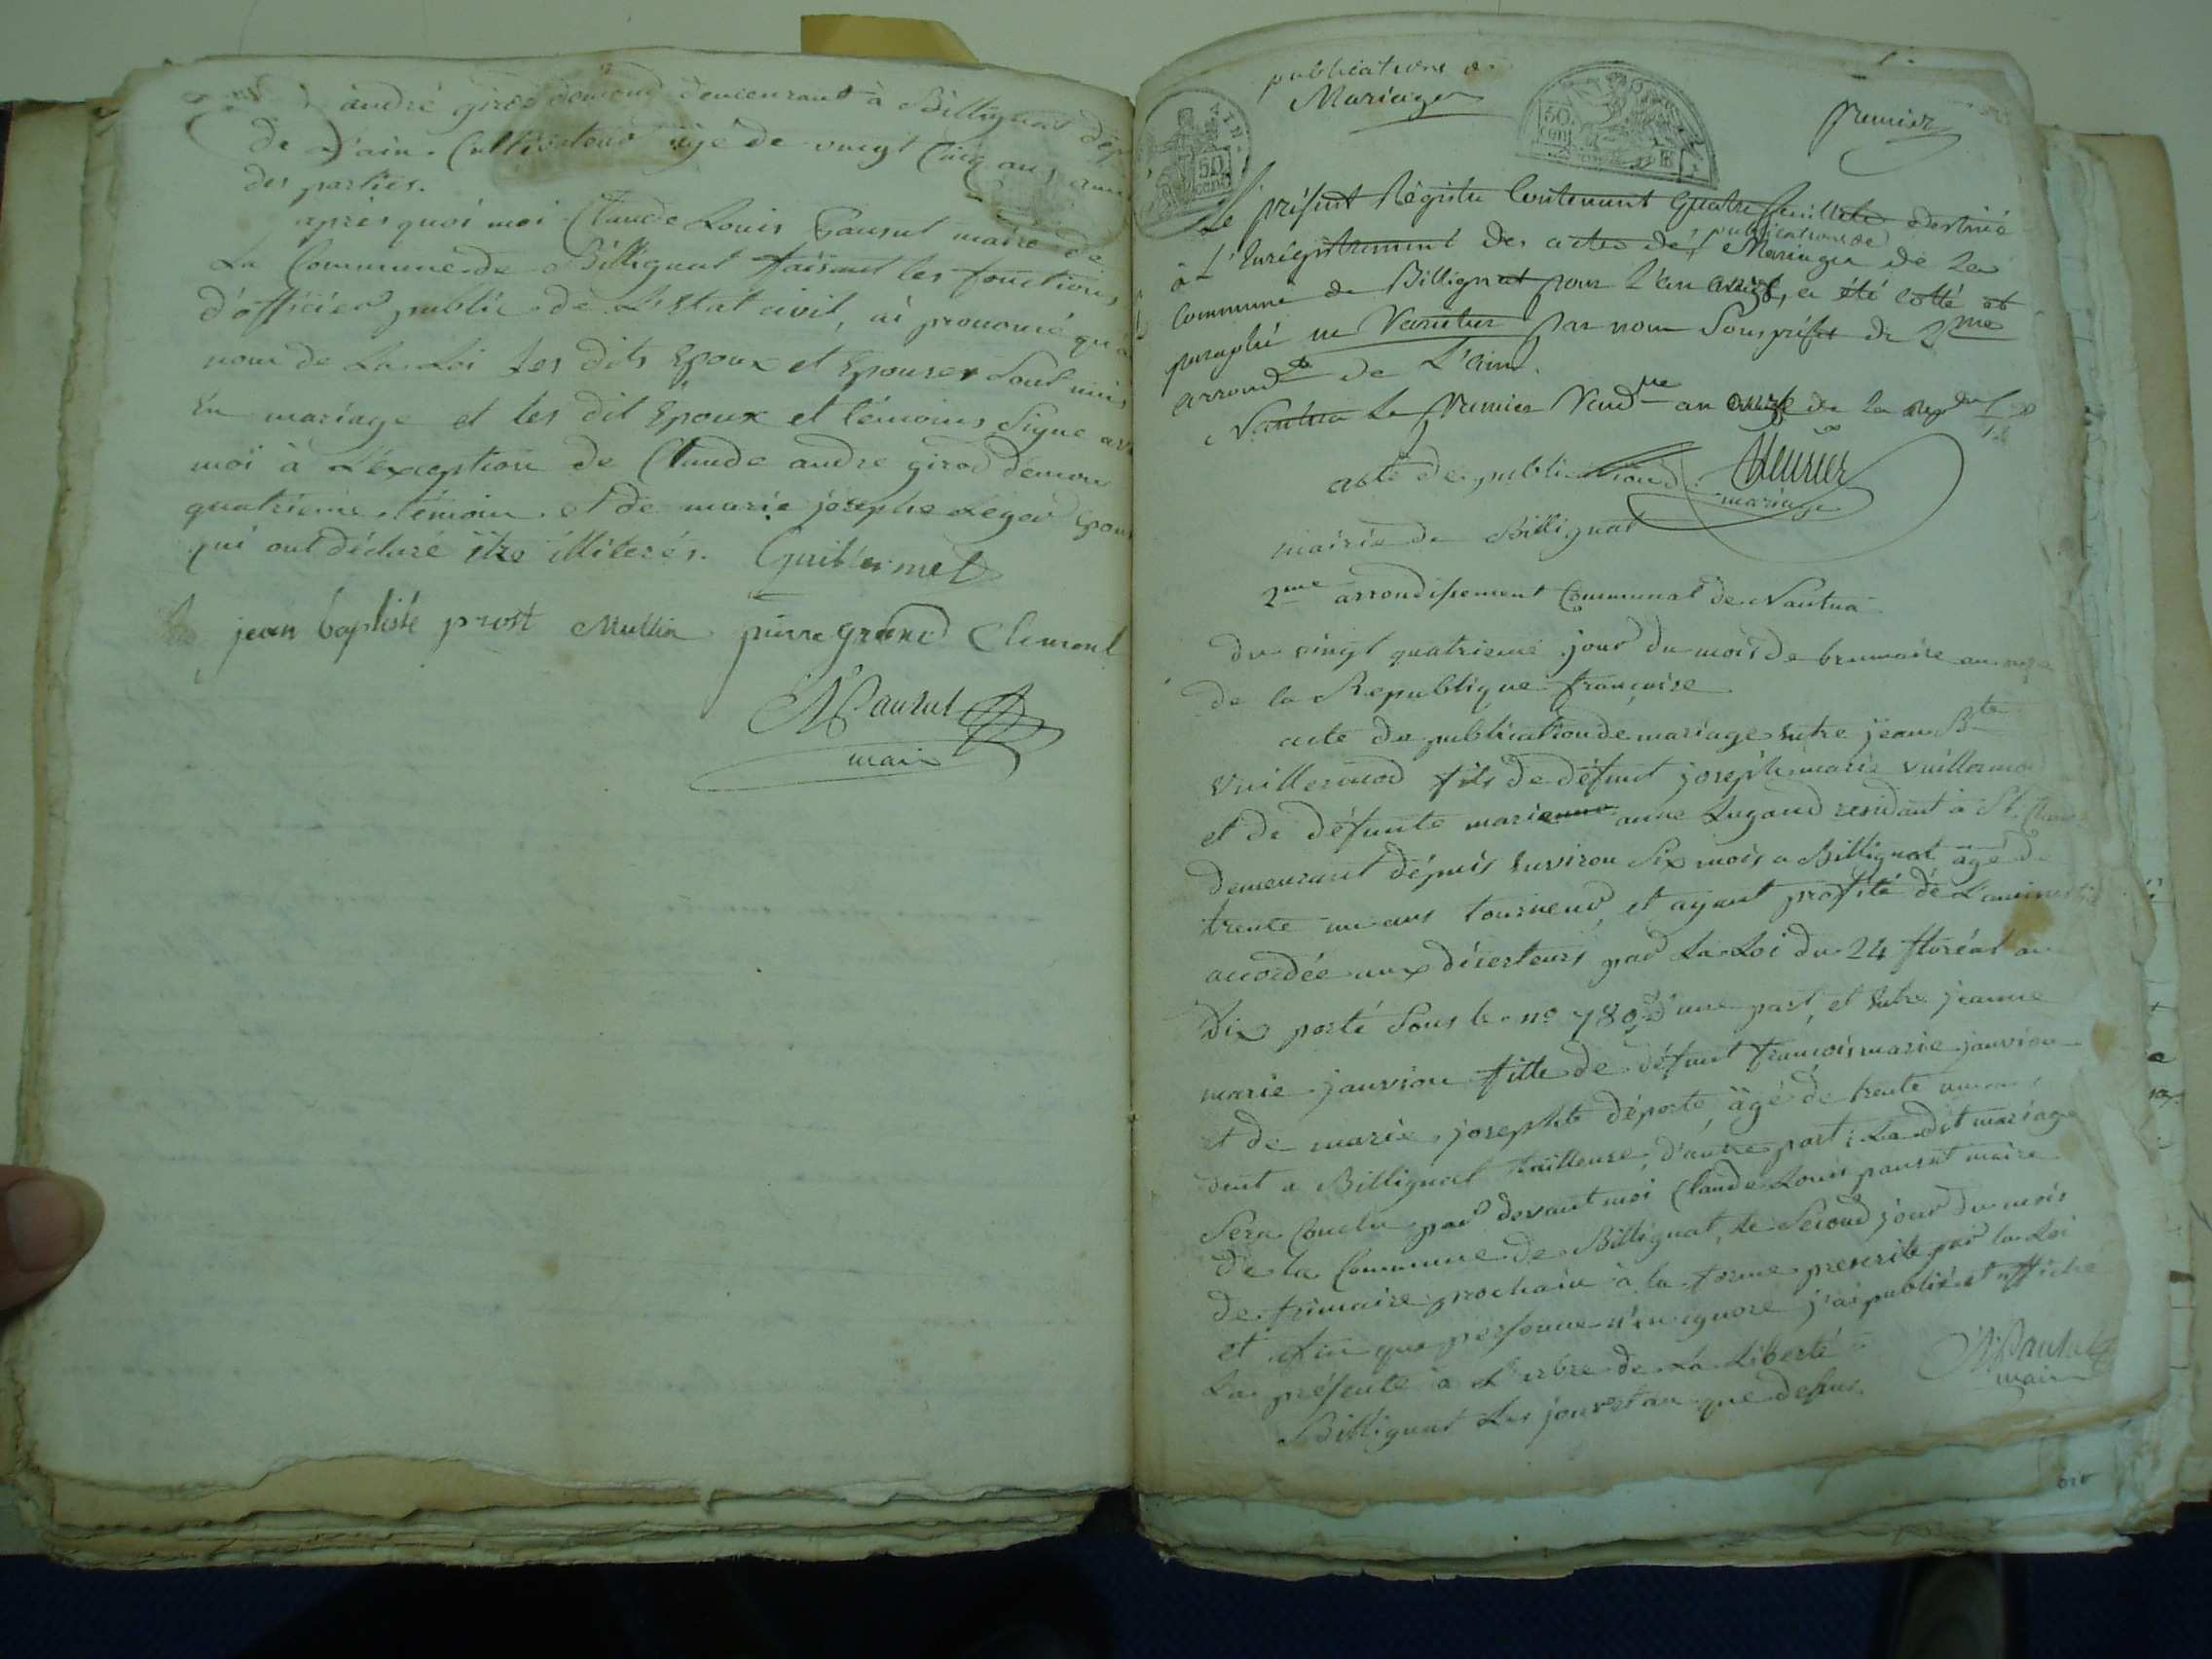 andré girod demond demeurant à Billignat dép
de d'ain. Cultivateur agé de vingt Cinq ans ami
des parties.
après quoi moi Claude Louis Pansut maire de
La Commune de Billignat faisant les fonctions
d'officier public de L'état civil, ai prononcé qu'a
nom de La Loi les dits Epoux et Epouses Sont unis
En mariage et les dit Epoux et témoins Signé av
moi à L'éxception de Claude andré girod demon
quatrieme témoin et de marie josephe Leger Epou
qui ont déclaré être illiterés. Guillermet
jean baptiste prost Mullin pierre grand Clement
Pansut
maire
publications de
Mariages
premier
50 cen
50 cent
AIN
Le présent Régistre Contenant quatre feuillets destiné
à L'Enrégistrement des actes de publications de Mariages de La
Commune de Billignat pour L'an onze, a été cotté et
paraphé ne Varietur par nous Sous préfet du 2me
arrondt de L'ain.
Nantua Le Premier Vendre an onze de la rep
acte de publication de mariage
mairie de Billignat
2me arrondissement Communal de Nantua
du vingt quatrieme jour du mois de brumaire an onze
de la Republique françoise
acte de publication de mariage entre jean Bte
Vuillermod fils de défunt joseph marie vuillermod
et de défunte marie anne Lugand residant à St. Claude
demeurant dépuis Environ Six mois a Billignat agé de
trente un ans tourneur, et ayant profité de L'amnistie
accordée aux déserteurs par La Loi du 24 floréal an
Dix porté Sous le no 780, d'une part, et Entre jeanne
marie janvion fille de défunt françois marie janvion
et de marie josephte déporte, âgé de trente un ans
dent a Billignat tailleuse, d'autre part; Le dit mariage
Sera Conclu par devant moi Claude Louis pansut maire
de la Commune de Billignat, le Second jour du mois
de frimaire prochain à la forme prescrite par la Loi
et afin que personne n'en ignore j'ai publié et affiché
La présente à L'arbre de La Liberté
Billignat Les jour et an que dessus.
Pansut
maire